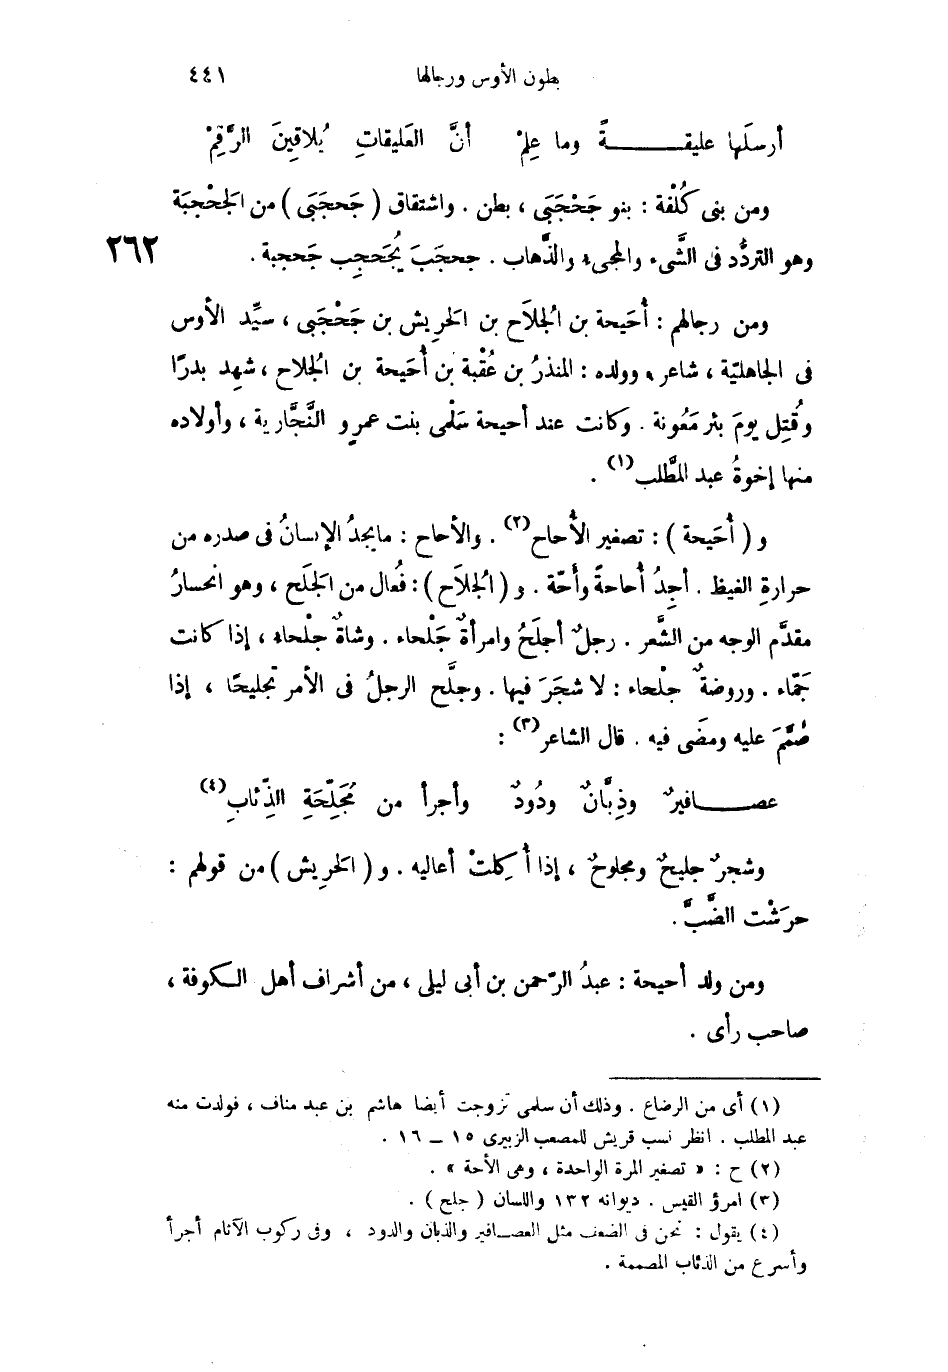 بطون الأوس ورجالها ٤٤١
أرسلَها عليقـــــــــةً وما عِلِمْ أنَّ العَليقاتِ يُلاقِينَ الرَّقِمْ
ومن بنى كُلْفة : بنو جَحْجَبَى ، بطن . واشتقاق ( جَحجَبَى ) من الجَحْجبَة
وهو التردُّد فى الشَّىء والمجىء والذَّهاب . جحجَبَ يُجَحجِب جَحجبة . ٢٦٢
ومن رجالهم : أُحَيحة بن الجُلَاح بن الحَرِيش بن جَحْجَبى ، سيِّد الأوس
فى الجاهليّة ، شاعر ، وولده : المنذرُ بن عُقْبة بن أُحَيحة بن الجُلاح ، شهِد بدرًا
وقُتِل يومَ بئر مَعُونة . وكانت عند أحيحة سَلْمى بنت عمرٍو النَّجَّارية ، وأولاده
منها إخوةُ عبد المطَّلب(١) .
و ( أُحَيحة ) : تصغير الأُحاح(٢) . والأحاح : مايجدُ الإنسانُ فى صدره من
حرارةِ الغيظ . أجِدُ أُحاحةً وأَحّة . و ( الجُلاَح ) : فُعال من الجَلَح ، وهو انحسارُ
مقدَّم الوجه من الشَّعر . رجلٌ أجلَحُ وامرأةٌ جَلْحاء . وشاةٌ جلْحاء ، إذا كانت
جَمّاء . وروضةٌ جلْحاء : لا شجَرَ فيها . وجلَّح الرجلُ فى الأمر تجليحًا ، إذا
صُمِّمَ عليه ومضَى فيه . قال الشاعر(٣) :
عصــــــافيرٌ وذِبَّانٌ ودُودٌ وأجرأ من مُجَلِّحَةِ الذِّئابِ(٤)
وشجرٌ جليحٌ ومجلوحٌ ، إذا أُكِلتْ أعاليه . و ( الحَرِيش ) من قولهم :
حرَشْت الضَّبَّ .
ومن ولد أحيحة : عبدُ الرّحمن بن أبى ليلى ، من أشراف أهل الكوفة ،
صاحب رأى .
(١) أى من الرضاع . وذلك أن سلمى تزوجت أيضا هاشم بن عبد مناف ، فولدت منه
عبد المطلب . انظر نسب قريش للمصعب الزبيرى ١٥ – ١٦ .
(٢) ح : « تصغير المرة الواحدة ، وهى الأحة » .
(٣) امرؤ القيس . ديوانه ١٣٢ واللسان ( جلح ) .
(٤) يقول : نحن فى الضعف مثل العصـافير والذبان والدود ، وفى ركوب الآثام أجرأ
وأسرع من الذئاب المصممة .